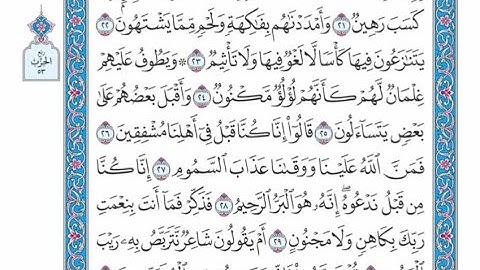 كَسَبَ رَهِينٌ ٢١ وَأَمْدَدْنَٰهُم بِفَٰكِهَةٍ وَلَحْمٍ مِّمَّا يَشْتَهُونَ ٢٢
يَتَنَٰزَعُونَ فِيهَا كَأْسًا لَّا لَغْوٌ فِيهَا وَلَا تَأْثِيمٌ ٢٣ ۞ وَيَطُوفُ عَلَيْهِمْ
غِلْمَانٌ لَّهُمْ كَأَنَّهُمْ لُؤْلُؤٌ مَّكْنُونٌ ٢٤ وَأَقْبَلَ بَعْضُهُمْ عَلَىٰ
بَعْضٍ يَتَسَآءَلُونَ ٢٥ قَالُوٓا۟ إِنَّا كُنَّا قَبْلُ فِىٓ أَهْلِنَا مُشْفِقِينَ ٢٦
فَمَنَّ ٱللَّهُ عَلَيْنَا وَوَقَىٰنَا عَذَابَ ٱلسَّمُومِ ٢٧ إِنَّا كُنَّا
مِن قَبْلُ نَدْعُوهُ ۖ إِنَّهُۥ هُوَ ٱلْبَرُّ ٱلرَّحِيمُ ٢٨ فَذَكِّرْ فَمَآ أَنتَ بِنِعْمَتِ
رَبِّكَ بِكَاهِنٍ وَلَا مَجْنُونٍ ٢٩ أَمْ يَقُولُونَ شَاعِرٌ نَّتَرَبَّصُ بِهِۦ رَيْبَ
ربع
الحزب
٥٣